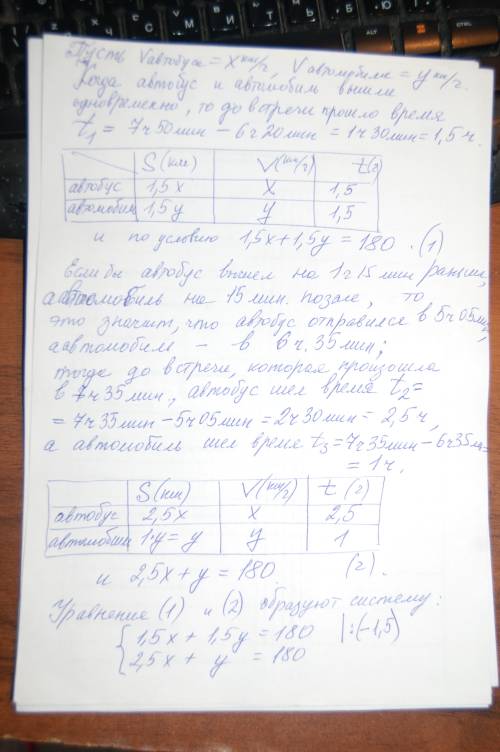 Пусть Vавтобуса = x км/ч, Vавтомобиля = y км/ч.
Когда автобус и автомобиль вышли
одновременно, то до встречи прошло время
t₁ = 7ч50мин − 6ч20мин = 1ч30мин = 1,5ч.
S(км) V(км/ч) t(ч)
автобус 1,5x x 1,5
автомобиль 1,5y y 1,5
и по условию 1,5x+1,5y = 180. (1)
Если бы автобус вышел на 1ч15мин раньше,
а автомобиль на 15мин. позже, то
это значит, что автобус отправился в 5ч05мин,
а автомобиль – в 6ч.35мин;
тогда до встречи, которая произошла
в 7ч35мин., автобус шел время t₂=
= 7ч35мин − 5ч05мин = 2ч30мин = 2,5ч,
а автомобиль шел время t₃=7ч35мин−6ч35мин=
= 1ч.
S(км) V(км/ч) t(ч)
автобус 2,5x x 2,5
автомобиль 1·y = y y 1
и 2,5x + y = 180. (2).
Уравнение (1) и (2) образуют систему:
1,5x + 1,5y = 180 |:(−1,5)
2,5x + y = 180